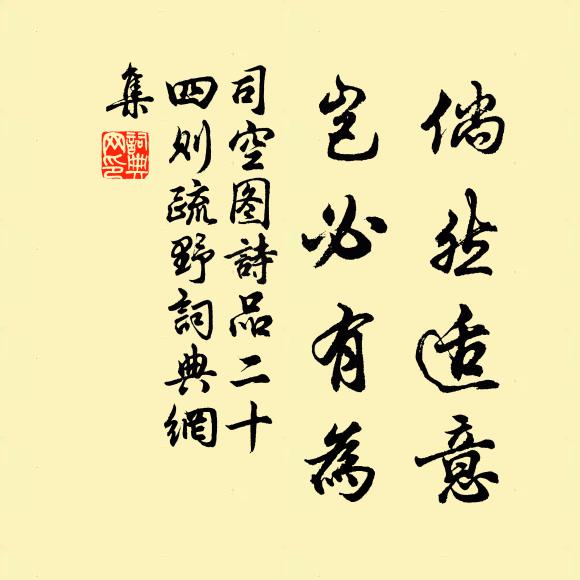 倘然适意
岂必有為
司空图詩品二十
四则疏野詞典網
集
詞典
网印